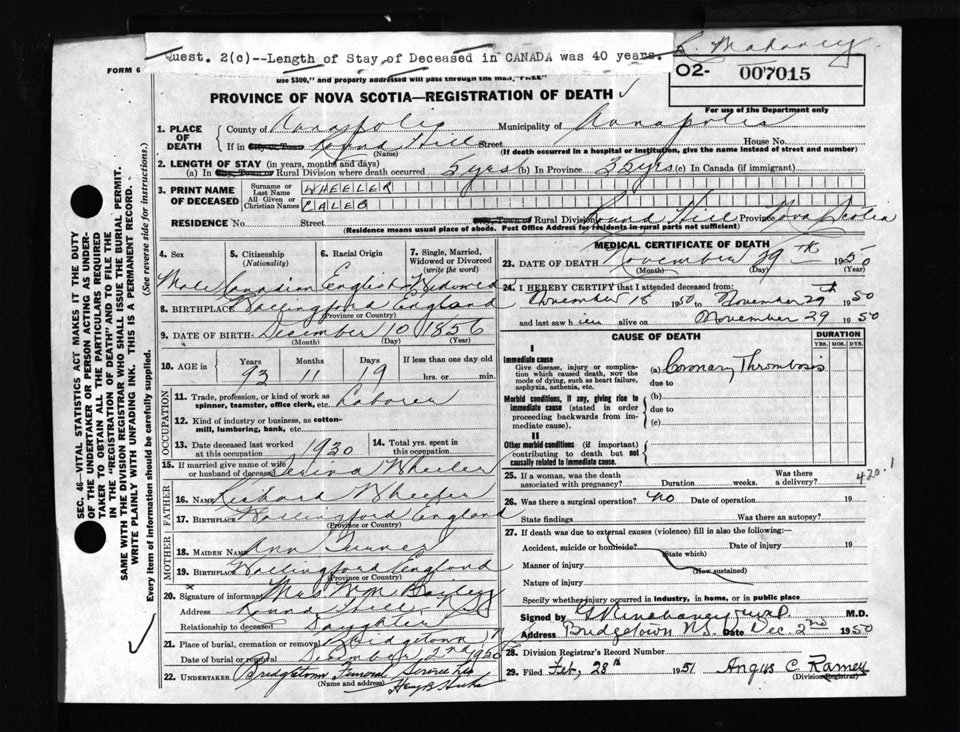 Quest. 2(c)--Length of Stay of Deceased in CANADA was 40 years.
FORM 6
use $300," and properly addressed will pass through the mail, "FREE"
O2- 007015
For use of the Department only
PROVINCE OF NOVA SCOTIA—REGISTRATION OF DEATH
1. PLACE OF DEATH
County of Annapolis Municipality of Annapolis
If in City or Town Round Hill Street House No.
(Name) (If death occurred in a hospital or institution, give the name instead of street and number)
2. LENGTH OF STAY (in years, months and days)
(a) In Rural Division where death occurred 5 yrs (b) In Province 35 yrs (c) In Canada (if immigrant)
3. PRINT NAME OF DECEASED
Surname or Last Name WHEELER
All Given or Christian Names CALEB
RESIDENCE No. Street Rural Division Round Hill Province Nova Scotia
(Residence means usual place of abode. Post Office Address for residents in rural parts not sufficient)
4. Sex 5. Citizenship (Nationality) 6. Racial Origin 7. Single, Married, Widowed or Divorced (write the word)
Male Canadian English Widowed
8. BIRTHPLACE Wallingford England
(Province or Country)
9. DATE OF BIRTH: December 10 1856
(Month) (Day) (Year)
10. AGE in Years Months Days If less than one day old
93 11 19 hrs. or min.
OCCUPATION
11. Trade, profession, or kind of work as spinner, teamster, office clerk, etc. Laborer
12. Kind of industry or business, as cotton-mill, lumbering, bank, etc.
13. Date deceased last worked at this occupation 1930
14. Total yrs. spent in this occupation
15. If married give name of wife or husband of deceased Wheeler
FATHER
16. NAME Richard Wheeler
17. BIRTHPLACE Wallingford England
(Province or Country)
MOTHER
18. MAIDEN NAME Ann Turner
19. BIRTHPLACE Wallingford England
(Province or Country)
20. Signature of informant Mrs Wm Bailey
Address Round Hill NS
Relationship to deceased Daughter
21. Place of burial, cremation or removal Bridgetown N
Date of burial or removal December 2nd 1950
22. UNDERTAKER Bridgetown Funeral Service Ltd
(Name and address)
MEDICAL CERTIFICATE OF DEATH
23. DATE OF DEATH November 29TH 1950
(Month) (Day) (Year)
24. I HEREBY CERTIFY that I attended deceased from:
November 18 1950 to November 29th 1950
and last saw him alive on November 29 1950
CAUSE OF DEATH DURATION
YRS. MOS. DYS.
I
Immediate cause
Give disease, injury or complication which caused death, NOT the mode of dying, such as heart failure, asphyxia, asthenia, etc.
(a) Coronary Thrombosis
due to
Morbid conditions, if any, giving rise to immediate cause (stated in order proceeding backwards from immediate cause).
(b)
due to
(c)
II
Other morbid conditions (if important) contributing to death but not causally related to immediate cause.
25. If a woman, was the death associated with pregnancy? Duration weeks. Was there a delivery?
420.1
26. Was there a surgical operation? no Date of operation 19
State findings Was there an autopsy?
27. If death was due to external causes (violence) fill in also the following:—
Accident, suicide or homicide? Date of injury 19
(State which)
Manner of injury
(How sustained)
Nature of injury
Specify whether injury occurred in industry, in home, or in public place
Signed by M.D.
Address Bridgetown N.S. Date Dec. 2nd 1950
28. Division Registrar's Record Number
29. Filed Feb. 28th 1951 Angus C. Ramey
(Division Registrar)
SEC. 46—VITAL STATISTICS ACT MAKES IT THE DUTY
OF THE UNDERTAKER OR PERSON ACTING AS UNDER-
TAKER TO OBTAIN ALL THE PARTICULARS REQUIRED
IN THE "REGISTRATION OF DEATH" AND TO FILE THE
SAME WITH THE DIVISION REGISTRAR WHO SHALL ISSUE THE BURIAL PERMIT.
WRITE PLAINLY WITH UNFADING INK. THIS IS A PERMANENT RECORD.
Every item of information should be carefully supplied. (See reverse side for instructions.)